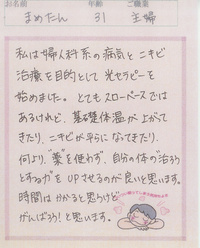 お名前 まめたん 年齢 31 ご職業 主婦
私は婦人科系の病気とニキビ
治療を目的として光セラピーを
始めました。とてもスローペースでは
あるけれど、基礎体温が上がて
きたり、ニキビが平らになってきたり、
何より、"薬"を使わず、自分の体の"治ろう
とする力"をUPさせるのが良いと思います。
時間はかかると思うけど
がんばろう!と思います。